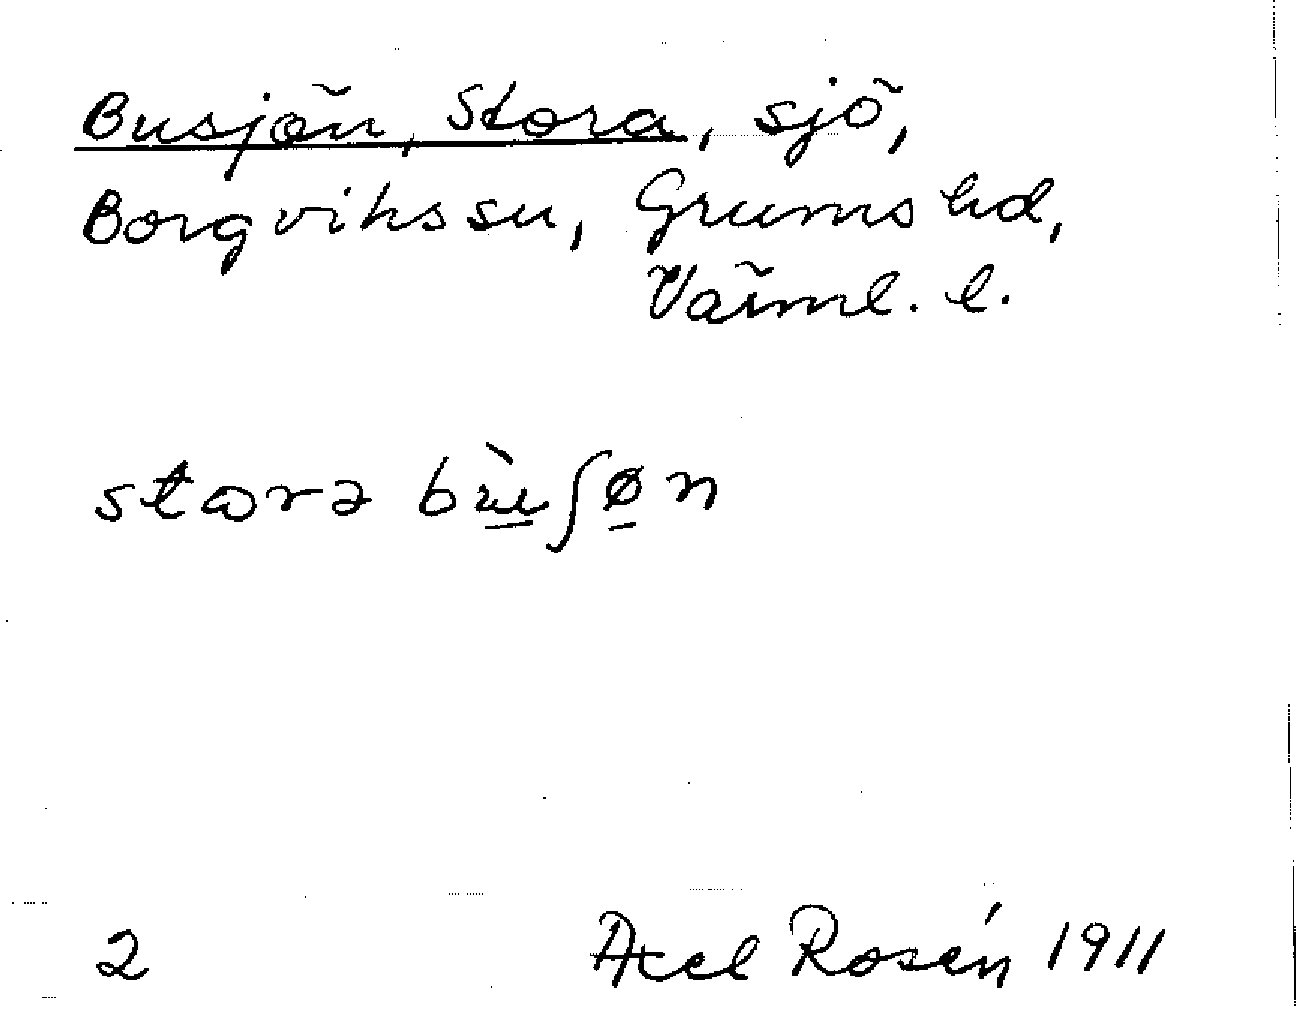 Busjön, Stora, sjö,
Borgvikssn, Grums hd,
Värml. l.
stɷrə bùʃøn
2 Axel Rosén 1911